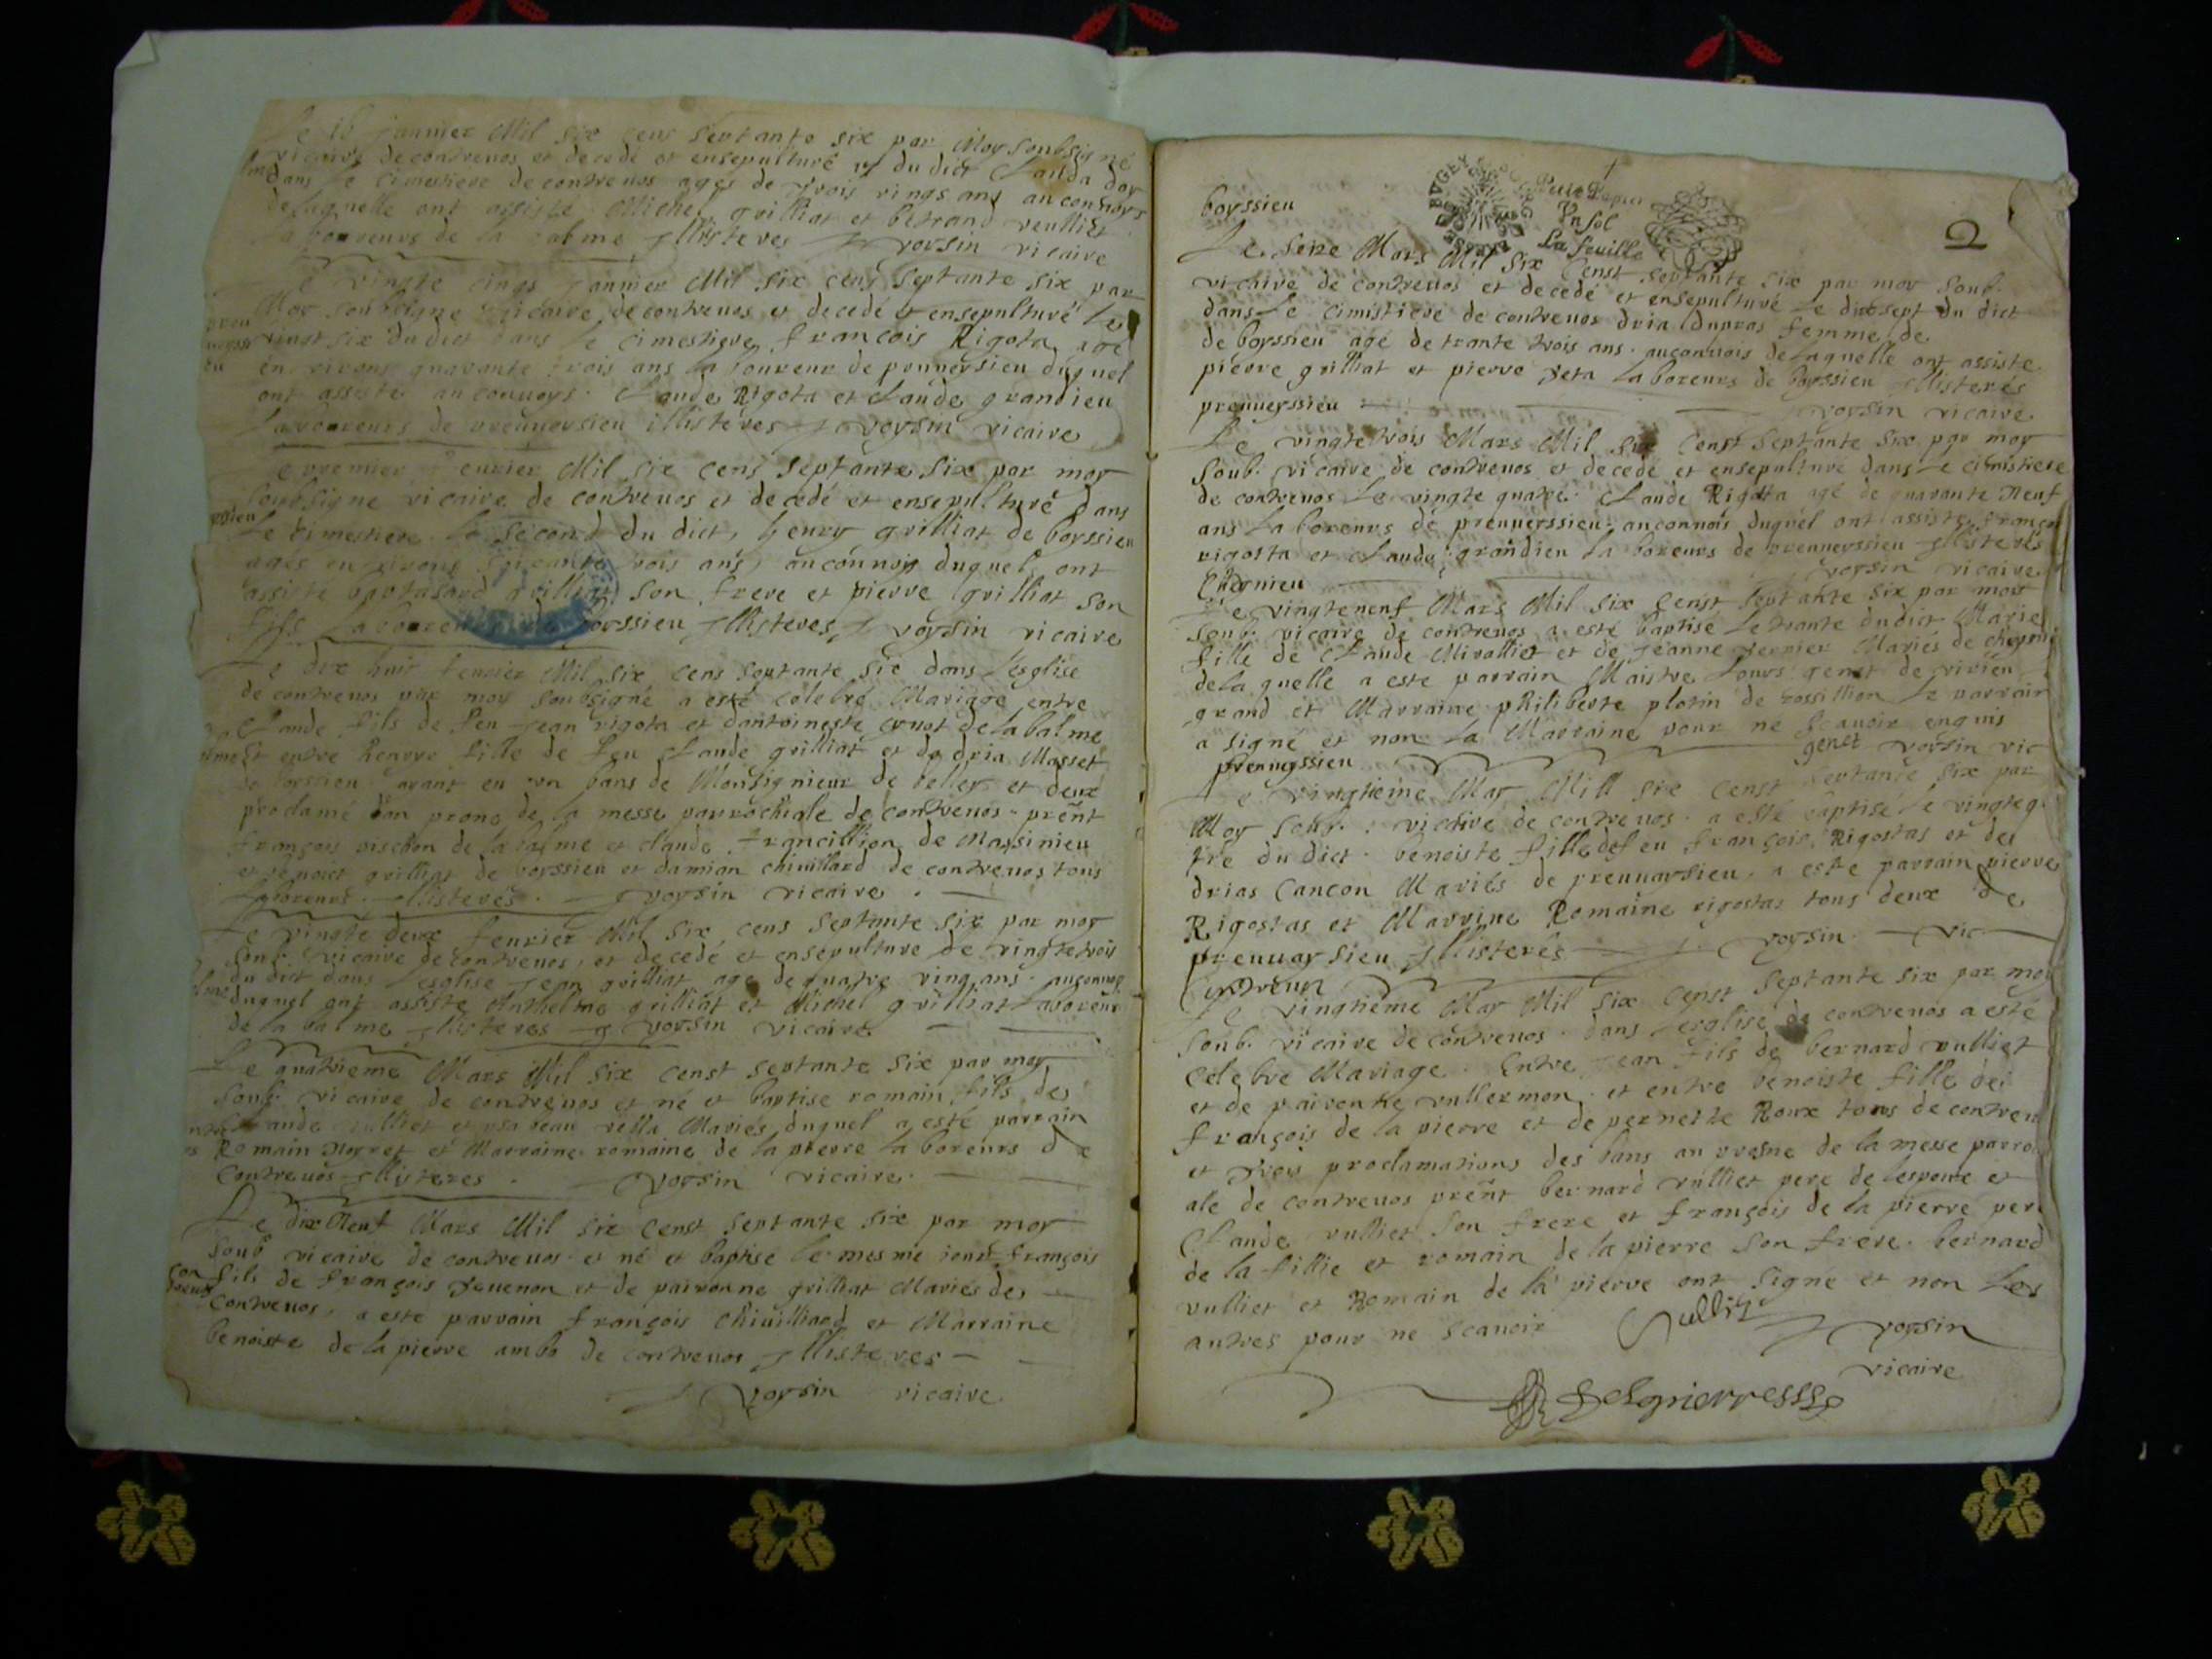 Le 16 Janvier Mil six cens septante six par Moy soubsigné
vicaire de contrevos et decedé et ensepulturé du dict Clauda
dans le cimestiere de contrevos agés de trois vings ans au convoys
de laquelle ont assisté Michel grilliat et betrand veulliet
laboureurs de la balme illisteres voysin vicaire
Le vingte cinqs Janvier Mil six cens septante six par
Moy soubsigne vicaire de contrevos et decedé et ensepulturé le
vingt six du dict dans le cimestiere francois Rigota agé
en viront quarante trois ans laboureur de preuversieu duquel
ont assisté au convoys Claude Rigota et Claude grandieu
laboureurs de preuveysieu illisteres voysin vicaire
Le premier feurier Mil six cens septante six par moy
soubsigne vicaire de contrevos et decedé et ensepulturé dans
le cimestiere le second du dict henry grilliat de boyssieu
agés en viront trois ans au convoy duquel ont
assiste grilliat son frere et pierre grilliat son
fils boyssieu illisteres voysin vicaire
Le dix huit feurier Mil six cens septante six dans l'esglise
de contrevos par moy soubsigné a esté celebré Mariage entre
Claude fils de feu Jean rigota et dantoineste de la balme
et entre fille de feu Claude grilliat et de dria Masset
de boyssieu ayant eu un bans de Monsignieur de belley et deux
proclamé au prone de la messe parrochiale de contrevos prent
françois de la balme et claude francillion de Massinieu
et benoict grilliat de boyssieu et damian chivillard de contrevos tous
laboreurs illisterés voysin vicaire
Le vingte deux feurier Mil six cens septante six par moy
soub: vicaire de contrevos et decedé et ensepulture le vingtetrois
du dict dans lesglise Jean grilliat age de quatre ving ans au convoy
duquel ont assiste Anthelme grilliat et Michel grilliat laboreur
de la balme illisteres voysin vicaire
Le quatrieme Mars Mil six censt septante six par moy
soub: vicaire de contrevos et né et baptise romain fils de
Claude vulliet et ysabeau vella Mariés duquel a esté parrain
Romain et Marraine romaine de la pierre laboreurs de
contrevos illisteres voysin vicaire
Le dix Neuf Mars Mil six censt septante six par moy
soub vicaire de contrevos et né et baptise le mesme iour françois
fils de françois Jeuenon et de pairone grilliat Mariés de
contrevos, a este parrain françois Chivilliard et Marraine
benoiste de la pierre ambo de contrevos illisteres
voysin vicaire
2
Un sol
La feuille
boyssieu
Le seize Mars Mil six censt septante six par moy soub:
vicaire de contrevos et decedé et ensepulturé le dixsept du dict
dans le cimistiere de contrevos dria dupras femme de
de boyssieu agé de trante trois ans au convois de laquelle ont assiste
pierre grilliat et pierre Jeta laboreurs de boyssieu illisterés
preuveyssieu voysin vicaire
Le vingtetrois Mars Mil six censt septante six par moy
soub: vicaire de contrevos et decede et ensepulturé dans le cimistiere
de contrevos le vingte quatre Claude Rigotta agé de quarante Neuf
ans laboreurs de preuverssieu au convois duquel ont assiste françois
rigosta et Claude grandieu laboreurs de preuveyssieu illisterés
voysin vicaire
Chegnieu
Le vingteneuf Mars Mil six censt septante six par moy
soub: vicaire de contrevos a esté baptise le trante du dict Marie
fille de Claude Miralliet et de Jeanne Mariés de
de la quelle a este parrain Maistre Louys genet de virieu
grand et Marraine philiberte plotin de rossillion le parrain
a signé et non la Marraine pour ne scavoir enquis
genet voysin vic
preuveyssieu
Le vingtieme May Mill six censt septante six par
Moy soub: vicaire de contrevos a esté baptise le vingteq.
tre du dict benoiste fille de feu françois Rigostas et de
drias Cancon Mariés de preuvaysieu, a este parrain pierre
Rigostas et Marrine Romaine rigostas tous deux de
preuvaysieu illisterés voysin vic
Contrevos
Le vingtieme May Mil six censt septante six par moy
soub: vicaire de contrevos dans lesglise de contrevos a esté
celebre Mariage Entre Jean fils de bernard vulliet
et de pairone vullermon et entre benoiste fille de
françois de la pierre et de pernette Roux tous de contrevos
et trois proclamations des bans au prosne de la messe parrochi
ale de contrevos prent bernard vulliet pere de lespoux et
Claude vulliet son frere et françois de la pierre pere
de la fillie et romain de la pierre son frere bernard
vulliet et Romain de la pierre ont signé et non les
autres pour ne scavoir Vulliet voysin
vicaire